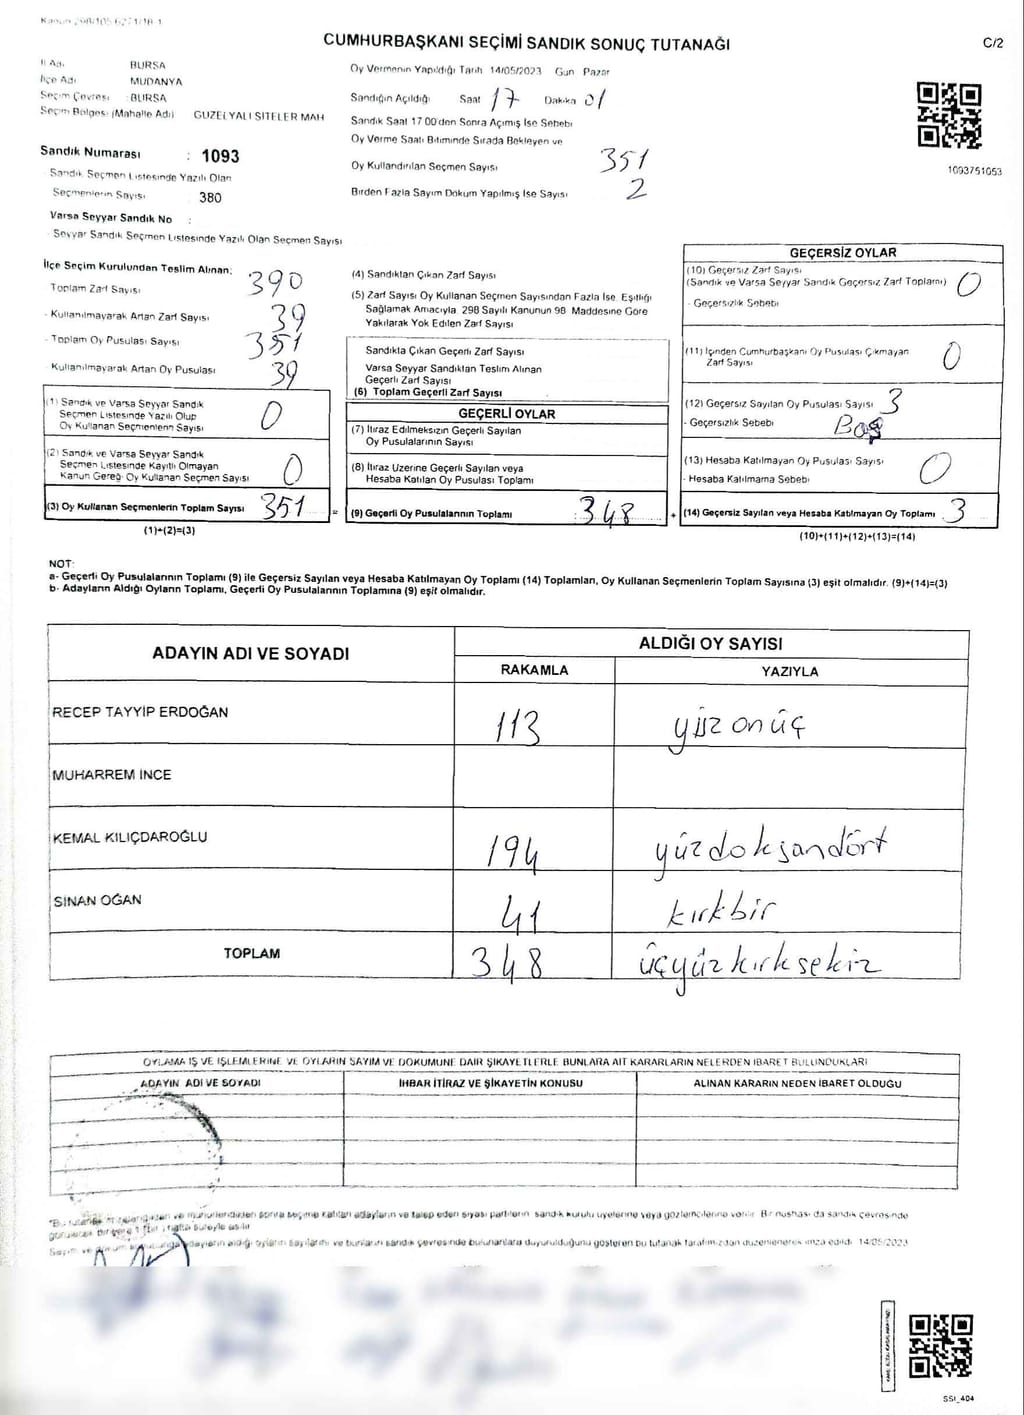 Kanun 298/105 6271/18-1
CUMHURBAŞKANI SEÇİMİ SANDIK SONUÇ TUTANAĞI
C/2
İl Adı BURSA
İlçe Adı MUDANYA
Seçim Çevresi BURSA
Seçim Bölgesi (Mahalle Adı) GÜZELYALI SİTELER MAH
Sandık Numarası : 1093
- Sandık Seçmen Listesinde Yazılı Olan
Seçmenlerin Sayısı 380
Varsa Seyyar Sandık No :
- Seyyar Sandık Seçmen Listesinde Yazılı Olan Seçmen Sayısı
Oy Vermenin Yapıldığı Tarih 14/05/2023 Gün Pazar
Sandığın Açıldığı Saat 17 Dakika 01
Sandık Saat 17 00'den Sonra Açılmış İse Sebebi
Oy Verme Saati Bitiminde Sırada Bekleyen ve
Oy Kullandırılan Seçmen Sayısı 351
Birden Fazla Sayım Döküm Yapılmış İse Sayısı 2
1093751053
İlçe Seçim Kurulundan Teslim Alınan;
Toplam Zarf Sayısı 390
- Kullanılmayarak Artan Zarf Sayısı 39
- Toplam Oy Pusulası Sayısı 351
- Kullanılmayarak Artan Oy Pusulası 39
(1) Sandık ve Varsa Seyyar Sandık
Seçmen Listesinde Yazılı Olup
Oy Kullanan Seçmenlerin Sayısı 0
(2) Sandık ve Varsa Seyyar Sandık
Seçmen Listesinde Kayıtlı Olmayan
Kanun Gereği Oy Kullanan Seçmen Sayısı 0
(3) Oy Kullanan Seçmenlerin Toplam Sayısı 351
(1)+(2)=(3)
(4) Sandıktan Çıkan Zarf Sayısı
(5) Zarf Sayısı Oy Kullanan Seçmen Sayısından Fazla İse, Eşitliği
Sağlamak Amacıyla, 298 Sayılı Kanunun 98. Maddesine Göre
Yakılarak Yok Edilen Zarf Sayısı
Sandıkta Çıkan Geçerli Zarf Sayısı
Varsa Seyyar Sandıktan Teslim Alınan
Geçerli Zarf Sayısı
(6) Toplam Geçerli Zarf Sayısı
GEÇERLİ OYLAR
(7) İtiraz Edilmeksizin Geçerli Sayılan
Oy Pusulalarının Sayısı
(8) İtiraz Üzerine Geçerli Sayılan veya
Hesaba Katılan Oy Pusulası Toplamı
= (9) Geçerli Oy Pusulalarının Toplamı : 348
GEÇERSİZ OYLAR
(10) Geçersiz Zarf Sayısı
(Sandık ve Varsa Seyyar Sandık Geçersiz Zarf Toplamı) 0
- Geçersizlik Sebebi
(11) İçinden Cumhurbaşkanı Oy Pusulası Çıkmayan
Zarf Sayısı 0
(12) Geçersiz Sayılan Oy Pusulası Sayısı 3
- Geçersizlik Sebebi Boş
(13) Hesaba Katılmayan Oy Pusulası Sayısı 0
- Hesaba Katılmama Sebebi
+ (14) Geçersiz Sayılan veya Hesaba Katılmayan Oy Toplamı 3
(10)+(11)+(12)+(13)=(14)
NOT:
a- Geçerli Oy Pusulalarının Toplamı (9) ile Geçersiz Sayılan veya Hesaba Katılmayan Oy Toplamı (14) Toplamları, Oy Kullanan Seçmenlerin Toplam Sayısına (3) eşit olmalıdır. (9)+(14)=(3)
b- Adayların Aldığı Oyların Toplamı, Geçerli Oy Pusulalarının Toplamına (9) eşit olmalıdır.
ADAYIN ADI VE SOYADI
ALDIĞI OY SAYISI
RAKAMLA YAZIYLA
RECEP TAYYİP ERDOĞAN 113 yüz onüç
MUHARREM İNCE
KEMAL KILIÇDAROĞLU 194 yüzdoksandört
SİNAN OĞAN 41 kırkbir
TOPLAM 348 üçyüzkırksekiz
OYLAMA İŞ VE İŞLEMLERİNE VE OYLARIN SAYIM VE DÖKÜMÜNE DAİR ŞİKAYETLERLE BUNLARA AİT KARARLARIN NELERDEN İBARET BULUNDUKLARI
ADAYIN ADI VE SOYADI İHBAR İTİRAZ VE ŞİKAYETİN KONUSU ALINAN KARARIN NEDEN İBARET OLDUĞU
ve mühürlendikten sonra seçime katılan adayların ve talep eden siyasi partilerin sandık kurulu üyelerine veya gözlemcilerine verilir. Bir nüshası da sandık çevresinde
hafta süreyle asılır
adayların aldığı oyların sayılarını ve bunların sandık çevresinde bulunanlara duyurulduğunu gösteren bu tutanak tarafımızdan düzenlenerek imza edildi. 14/05/2023
SSI_404